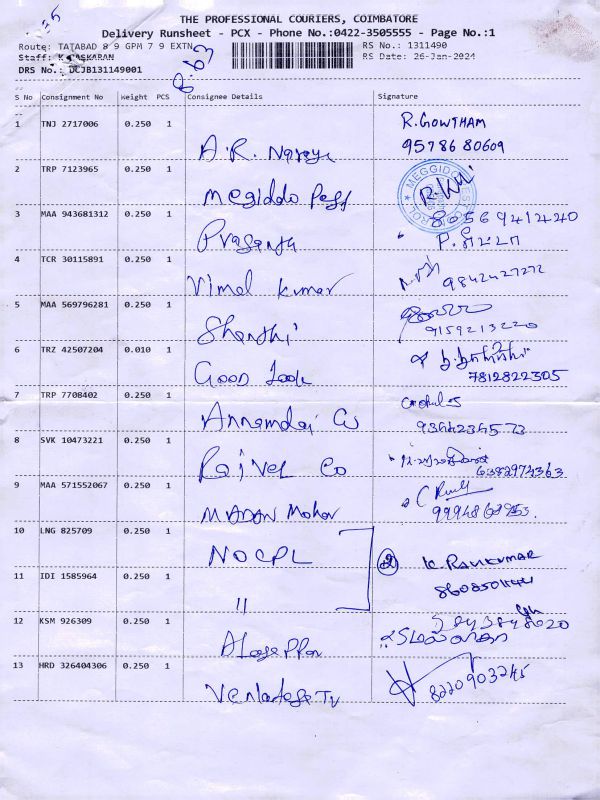 THE PROFESSIONAL COURIERS, COIMBATORE
Delivery Runsheet - PCX - Phone No.:0422-3505555 - Page No.:1
Route: TATABAD 8 9 GPM 7 9 EXTN
RS No.: 1311490
Staff: K BASKARAN
RS Date: 26-Jan-2024
DRS No.: DCJB131149001
8.63
S No Consignment No Weight PCS Consignee Details Signature
1 TNJ 2717006 0.250 1 A.R. R. GOWTHAM
9578680609
2 TRP 7123965 0.250 1 Megiddo Pest
3 MAA 943681312 0.250 1 Prasanna 8056941240
4 TCR 30115891 0.250 1 Vimal Kumar 9842427272
5 MAA 569796281 0.250 1 Shanthi 9159213220
6 TRZ 42507204 0.010 1 Good Look
7812822305
7 TRP 7708402 0.250 1 Annamalai
9344234573
8 SVK 10473221 0.250 1 Rajvel Co 6382974363
9 MAA 571552067 0.250 1 MADAN Mohan
10 LNG 825709 0.250 1 NOCPL K. RAMKUMAR
11 IDI 1585964 0.250 1 "
12 KSM 926309 0.250 1
13 HRD 326404306 0.250 1 8220903245